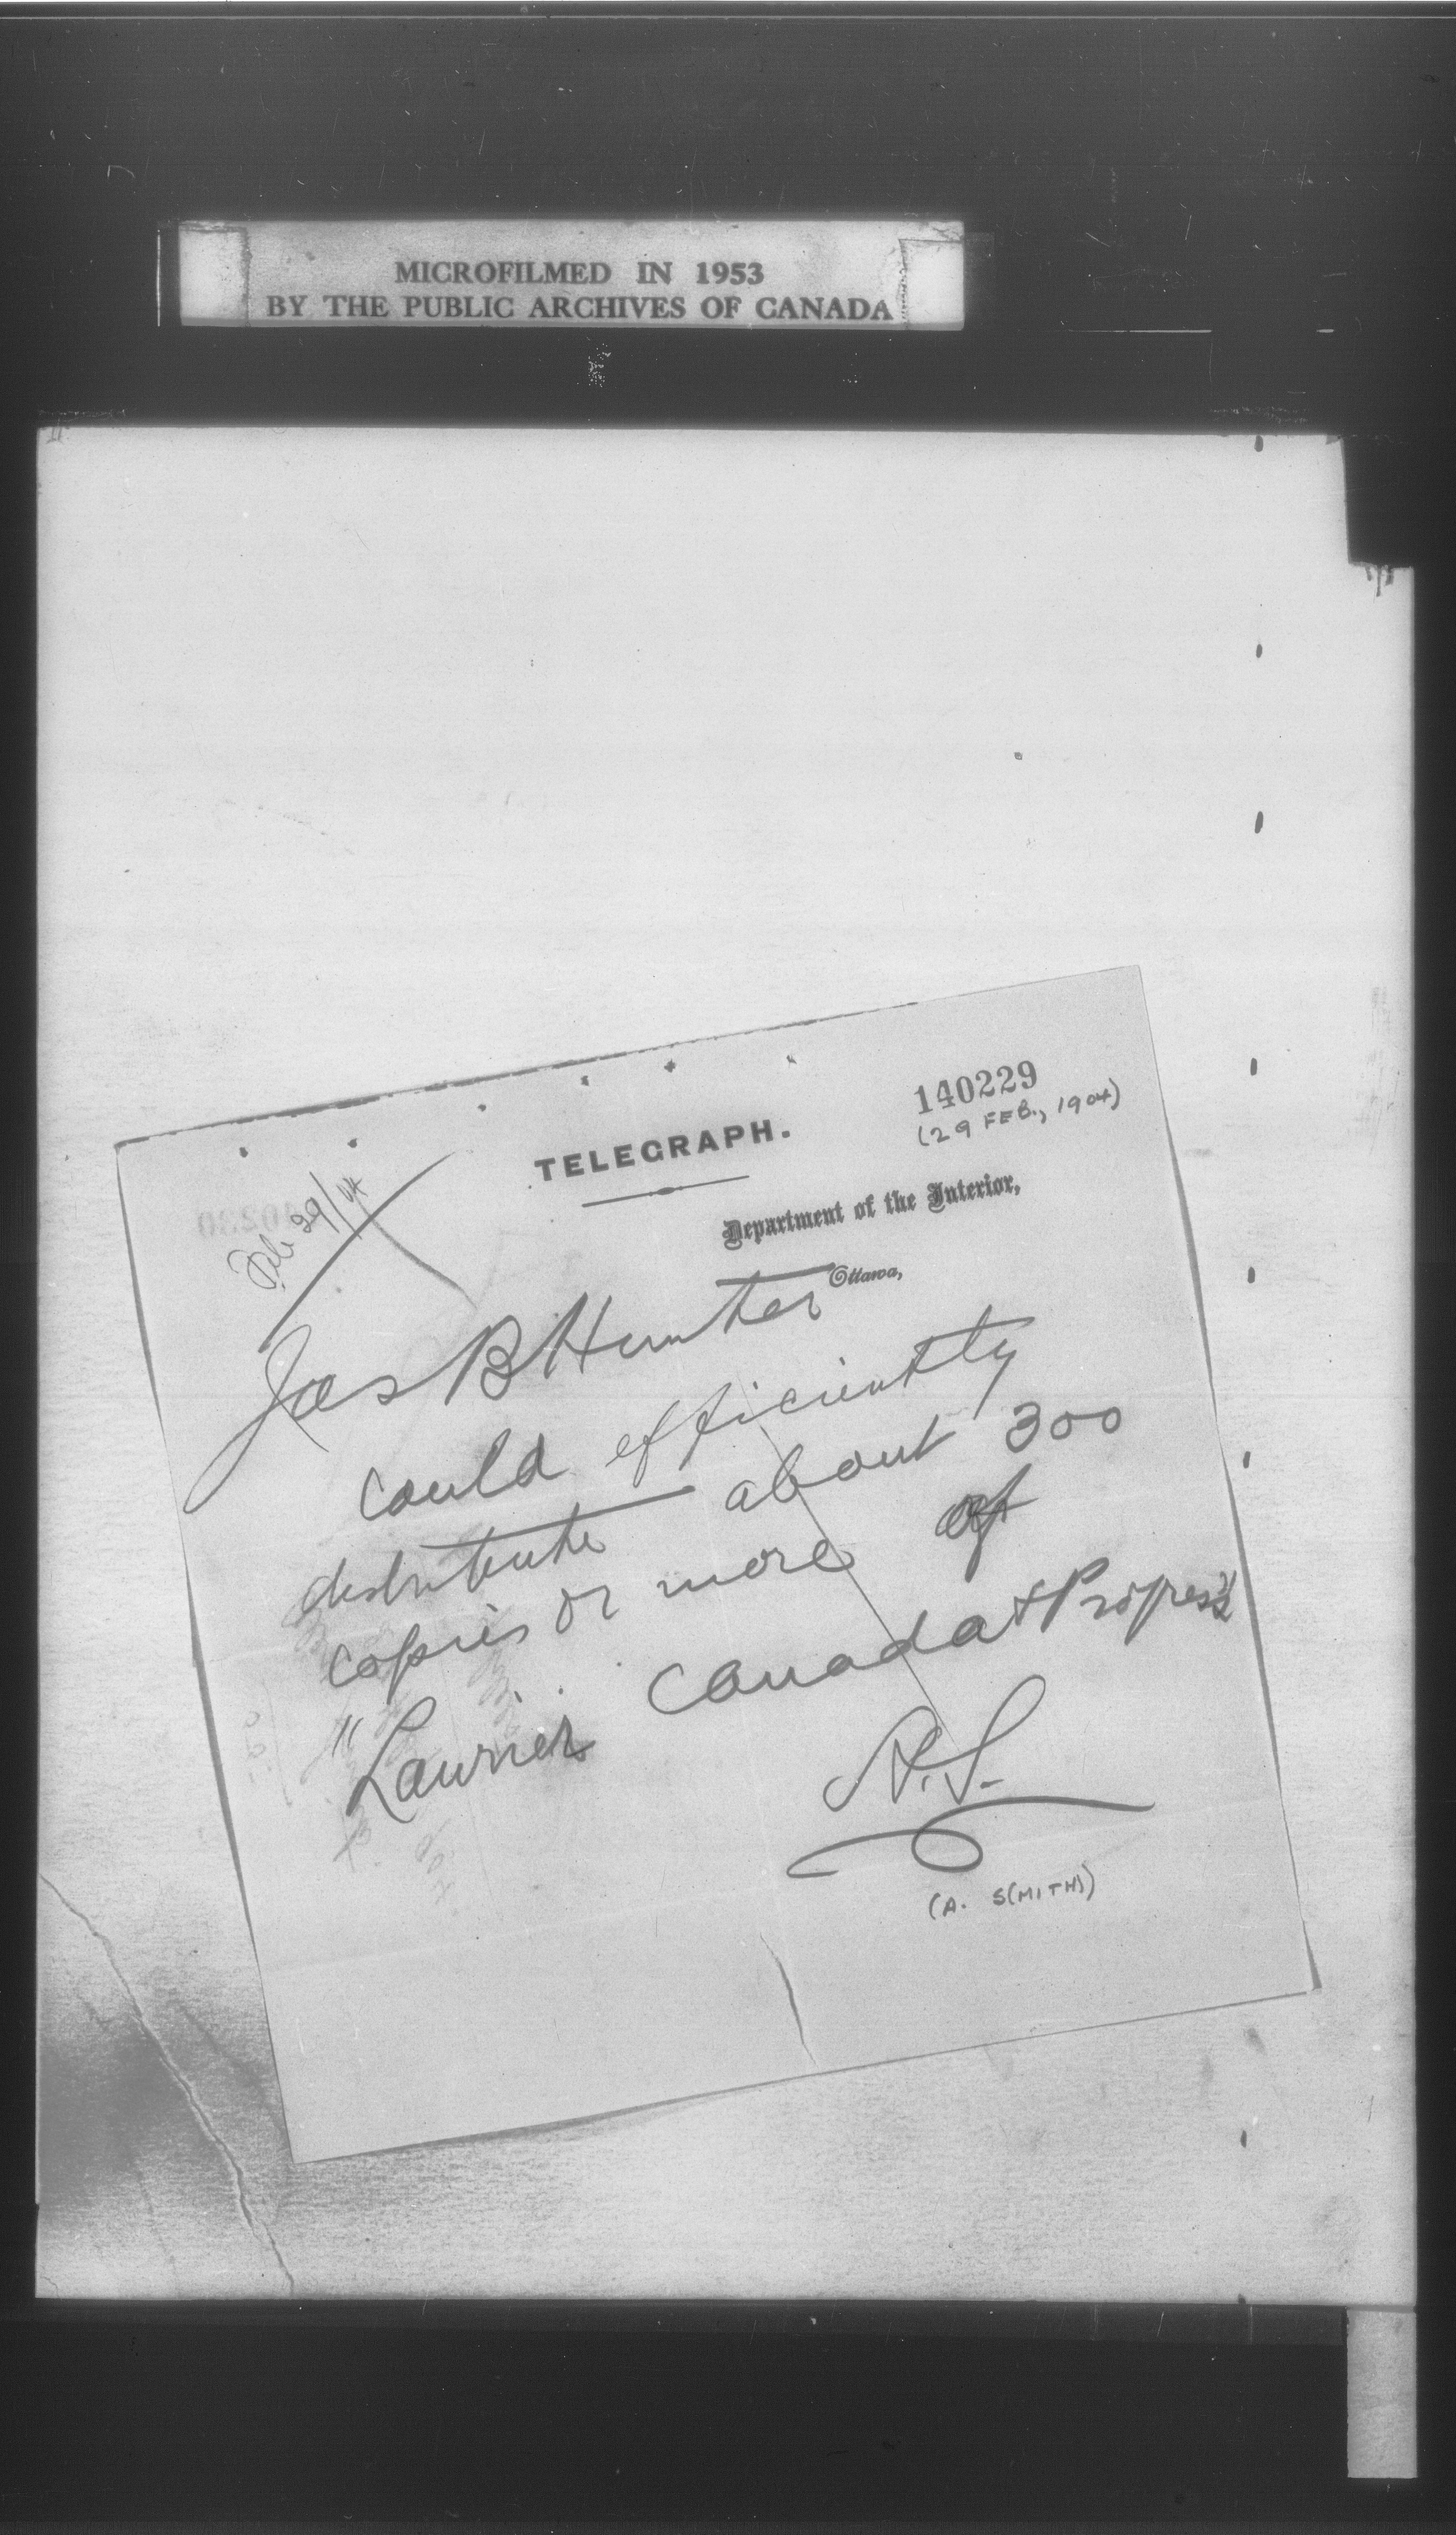 MICROFILMED IN 1953
BY THE PUBLIC ARCHIVES OF CANADA
140229
(29 FEB., 1904)
TELEGRAPH.
Feb 29/04
Department of the Interior,
Ottawa,
Jas B Hunter
Could efficiently
distribute about 300
copies or more of
"Laurier Canada & Progress"
A.S.
(A. S(MITH))